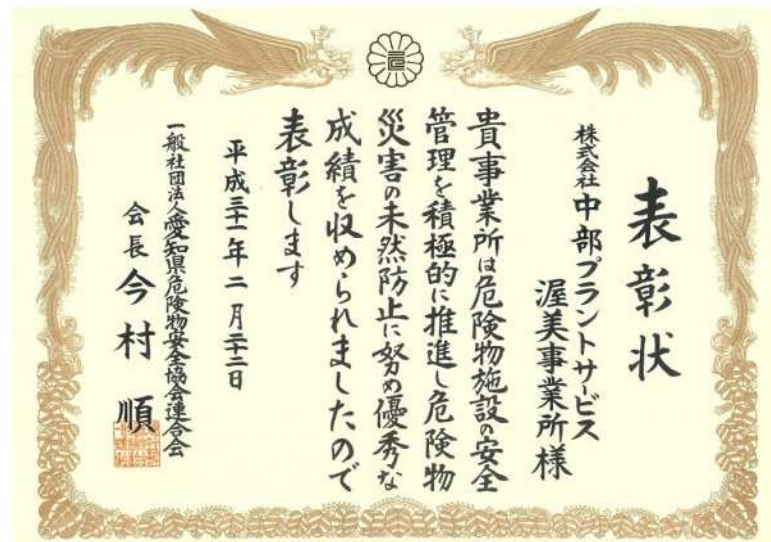 表彰状
株式会社 中部プラントサービス
渥美事業所様
貴事業所は危険物施設の安全
管理を積極的に推進し危険物
災害の未然防止に努め優秀な
成績を収められましたので
表彰します
平成三十一年二月二十二日
一般社団法人愛知県危険物安全協会連合会
会長 今村 順